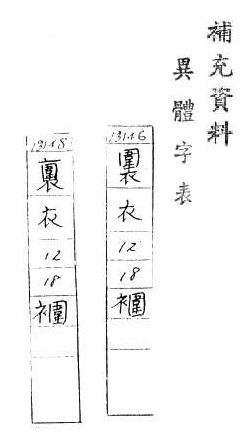 補充資料
異體字表
13146
衣
12
18
13148
衣
12
18